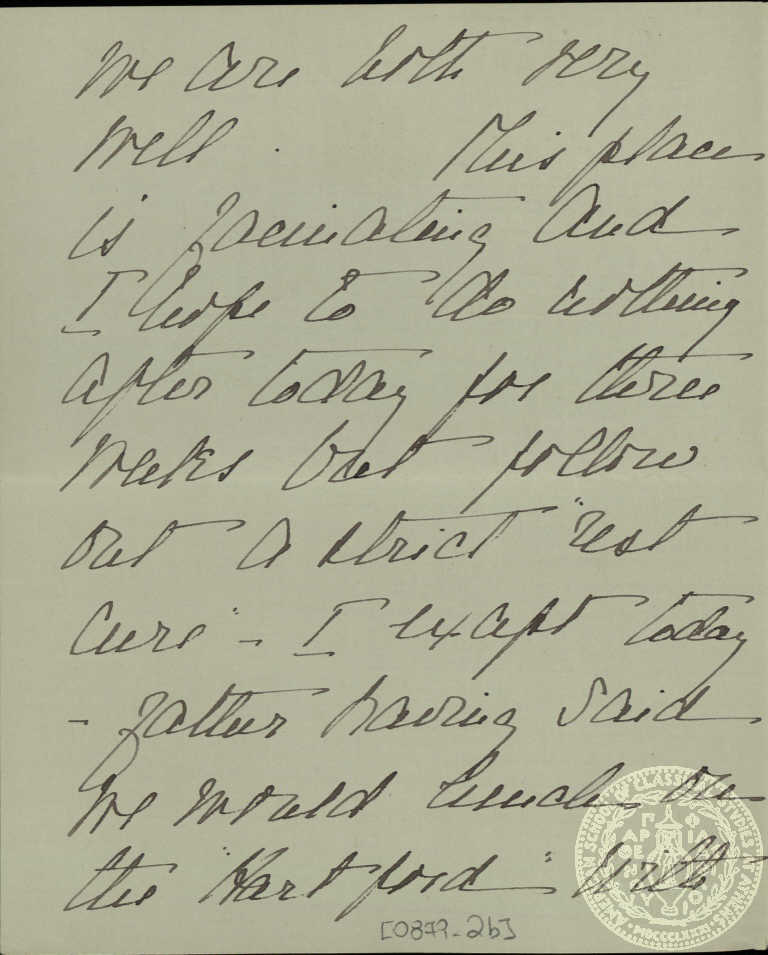 We are both very
well. This place
is facinating and
I hope to do nothing
after today for three
weeks but follow
out a strict "rest
cure" - I except today
- father having said
we would lunch on
the "Hartford" with
[0879-2b]